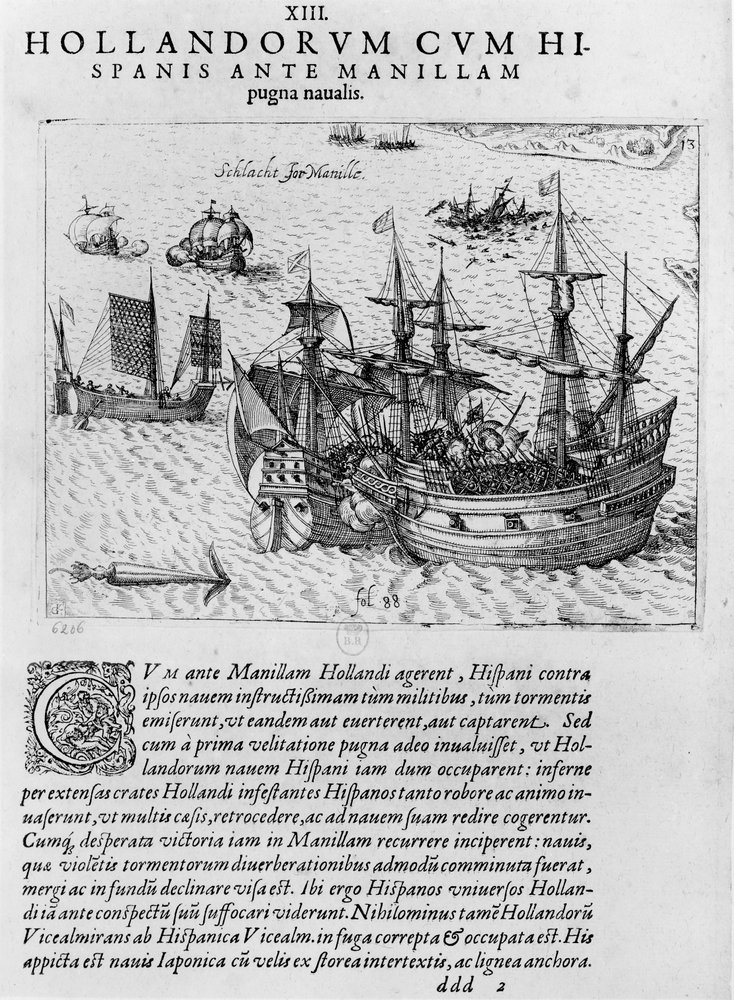 XIII.
HOLLANDORVM CVM HI-
SPANIS ANTE MANILLAM
pugna naualis.
13
Schlacht for Manille.
fol 88
6206
B.R
CVM ante Manillam Hollandi agerent, Hiſpani contra
ipſos nauem inſtructißimam tùm militibus, tùm tormentis
emiſerunt, vt eandem aut euerterent, aut captarent. Sed
cum à prima velitatione pugna adeo inualuiſſet, vt Hol-
landorum nauem Hiſpani iam dum occuparent: inferne
per extenſas crates Hollandi infeſtantes Hiſpanos tanto robore ac animo in-
uaſerunt, vt multis cæſis, retrocedere, ac ad nauem ſuam redire cogerentur.
Cumq́; deſperata victoria iam in Manillam recurrere inciperent: nauis,
quæ violētis tormentorum diuerberationibus admodū comminuta fuerat,
mergi ac in fundū declinare viſa eſt. Ibi ergo Hiſpanos vniuerſos Hollan-
di iā ante conſpectū ſuū ſuffocari viderunt. Nihilominus tamē Hollandorū
Vicealmirans ab Hiſpanica Vicealm. in fuga correpta & occupata eſt. His
appicta eſt nauis Iaponica cū velis ex ſtorea intertextis, ac lignea anchora.
ddd 2